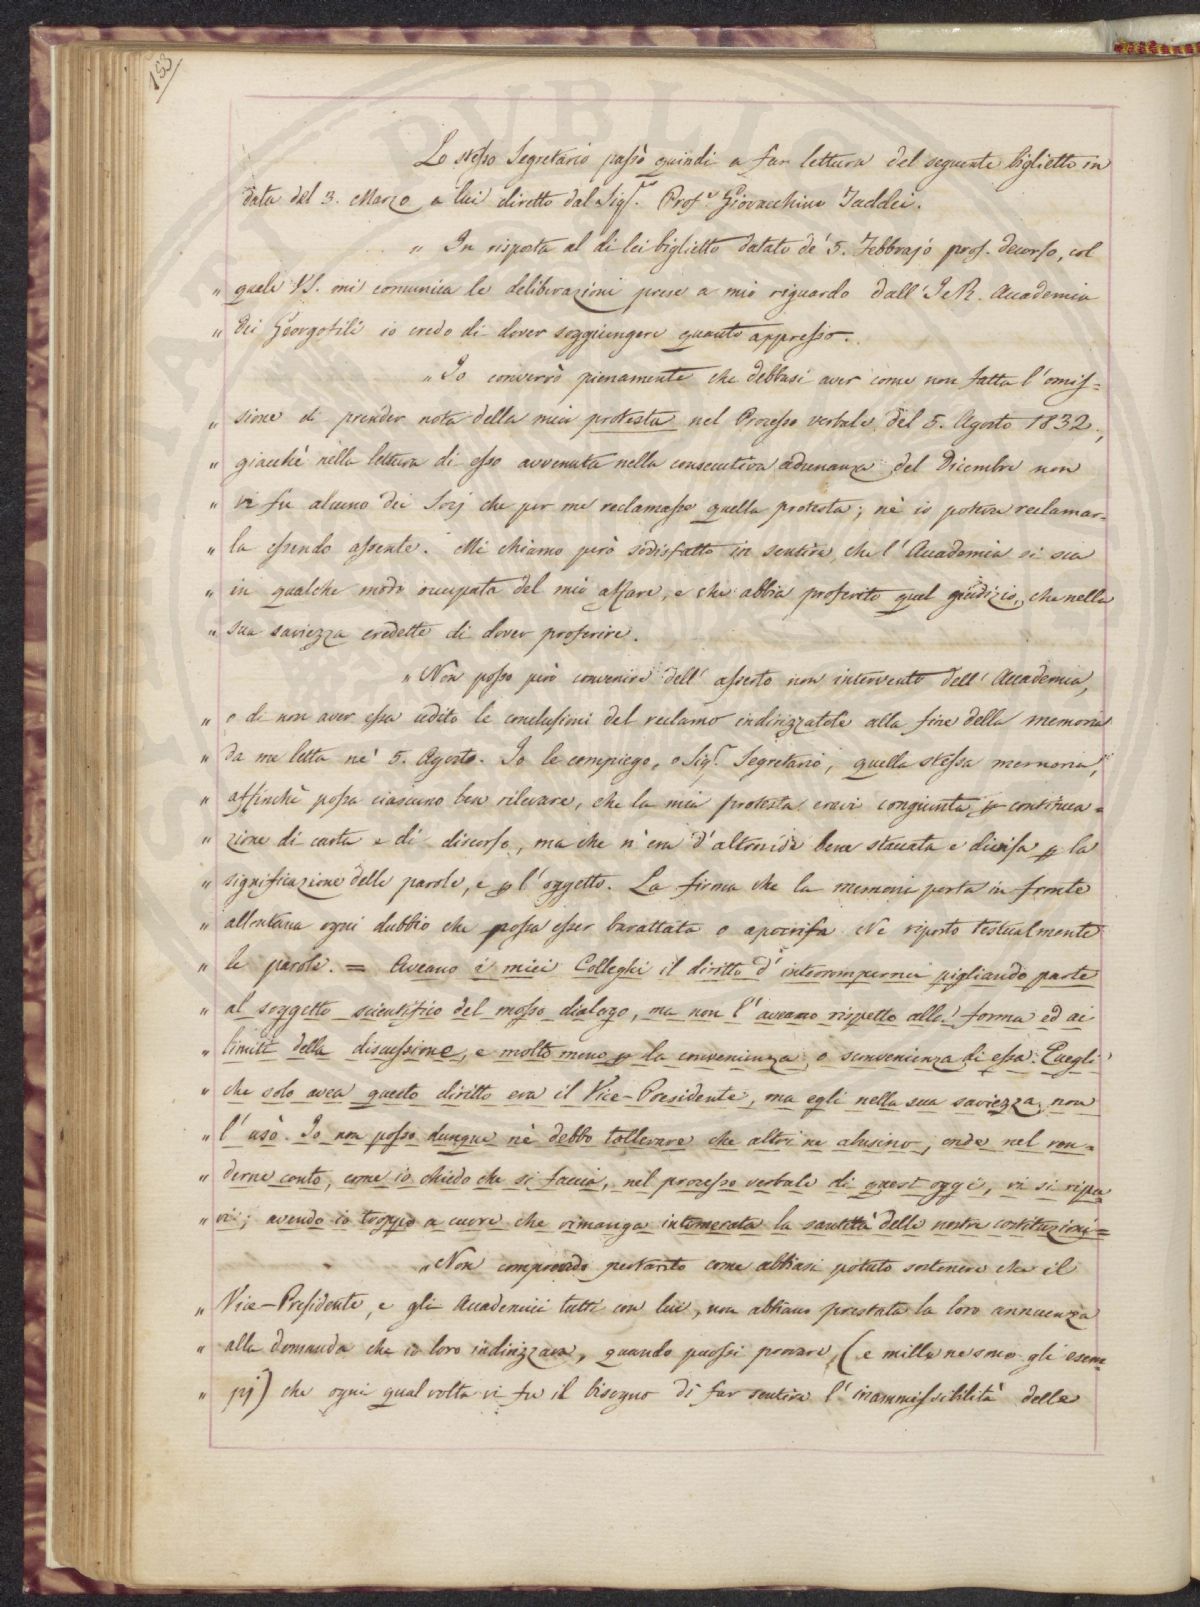 153
Lo stesso Segretario passò quindi a far lettura del seguente biglietto in
data del 3. Marzo a lui diretto dal Sigʳ. Profʳ. Giovacchino Taddei.
" In risposta al di lei biglietto datato de' 5. Febbrajo pros. decorso, col
" quale VS. mi comunica le deliberazioni prese a mio riguardo dall' I e R. Accademia
" dei Georgofili io credo di dover soggiungere quanto appresso.
" Io converrò pienamente che debbasi aver come non fatta l'omis=
" sione di prender nota della mia protesta nel Processo verbale del 5. Agosto 1832.,
" giacchè nella lettura di esso avvenuta nella consecutiva adunanza del Dicembre non
" vi fu alcuno dei Socj che per me reclamasse quella protesta; nè io poteva reclamar=
" la essendo assente. Mi chiamo però sodisfatto in sentire, che l'Accademia si sia
" in qualche modo occupata del mio affare, e che abbia proferito quel giudizio, che nella
" sua saviezza credette di dover proferire.
" Non posso però convenire dell' asserto non intervento dell' Accademia,
" o di non aver essa udito le conclusioni del reclamo indirizzatole alla fine della memoria
" da me letta ne' 5. Agosto. Io le compiego, o Sigʳ. Segretario, quella stessa memoria,
" affinchè possa ciascuno ben rilevare, che la mia protesta eravi congiunta ꝑ continua=
" zione di carta e di discorso, ma che n'era d'altronde bene staccata e divisa ꝑ la
" significazione delle parole, e ꝑ l'oggetto. La firma che la memoria porta in fronte
" allontana ogni dubbio che possa esser barattata o apocrifa. Ne riporto testualmente
" le parole. = Aveano i miei Colleghi il diritto d'interrompermi pigliando parte
" al soggetto scientifico del mosso dialogo, ma non l'aveano rispetto alla forma ed ai
" limiti della discussione, e molto meno ꝑ la convenienza o sconvenienza di essa. Quegli
" che solo avea questo diritto era il Vice-Presidente, ma egli nella sua saviezza non
" l'usò. Io non posso dunque nè debbo tollerare che altri ne abusino, onde nel ren=
" derne conto, come io chiedo che si faccia, nel processo verbale di quest'oggi, vi si ripa
" ri; avendo io troppo a cuore che rimanga intemerata la santità delle nostre costituzioni=
" Non comprendo pertanto come abbiasi potuto sostenere che il
" Vice-Presidente, e gli Accademici tutti con lui, non abbiano prestata la loro annuenza
" alla domanda che io loro indirizzava, quando puossi provare, (e mille ne sono gli esem
" pj) che ogni qual volta vi fu il bisogno di far sentire l'inammissibilità delle